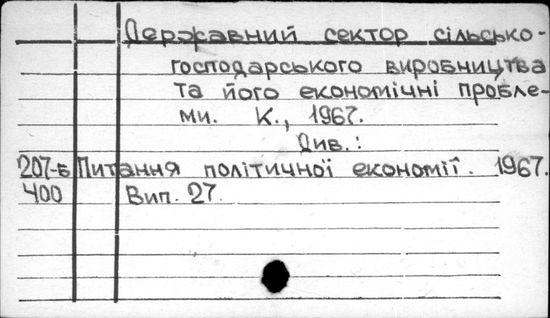 Державний сектор сільсько-
господарського виробництва
та його економічні пробле-
ми. К., 1967.
Див.:
207-Б Питання політичної економії. 1967.
400 Вип. 27.